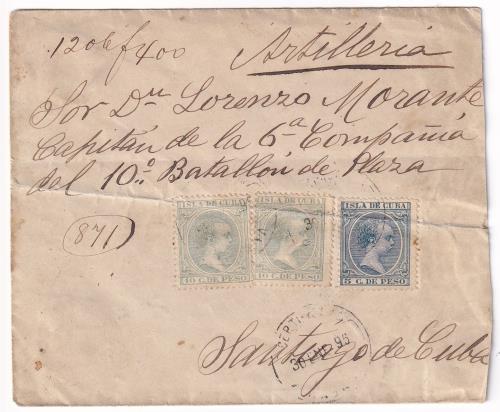 1206 f 400
Artilleria
Sor Dn Lorenzo Morante
Capitán de la 6ª Compañia
del 10º Batallón de Plaza
871
ISLA DE CUBA
ISLA DE CUBA
ISLA DE CUBA
10 C. DE PESO
10 C. DE PESO
5 C. DE PESO
30 ENE 96
Santiago de Cuba